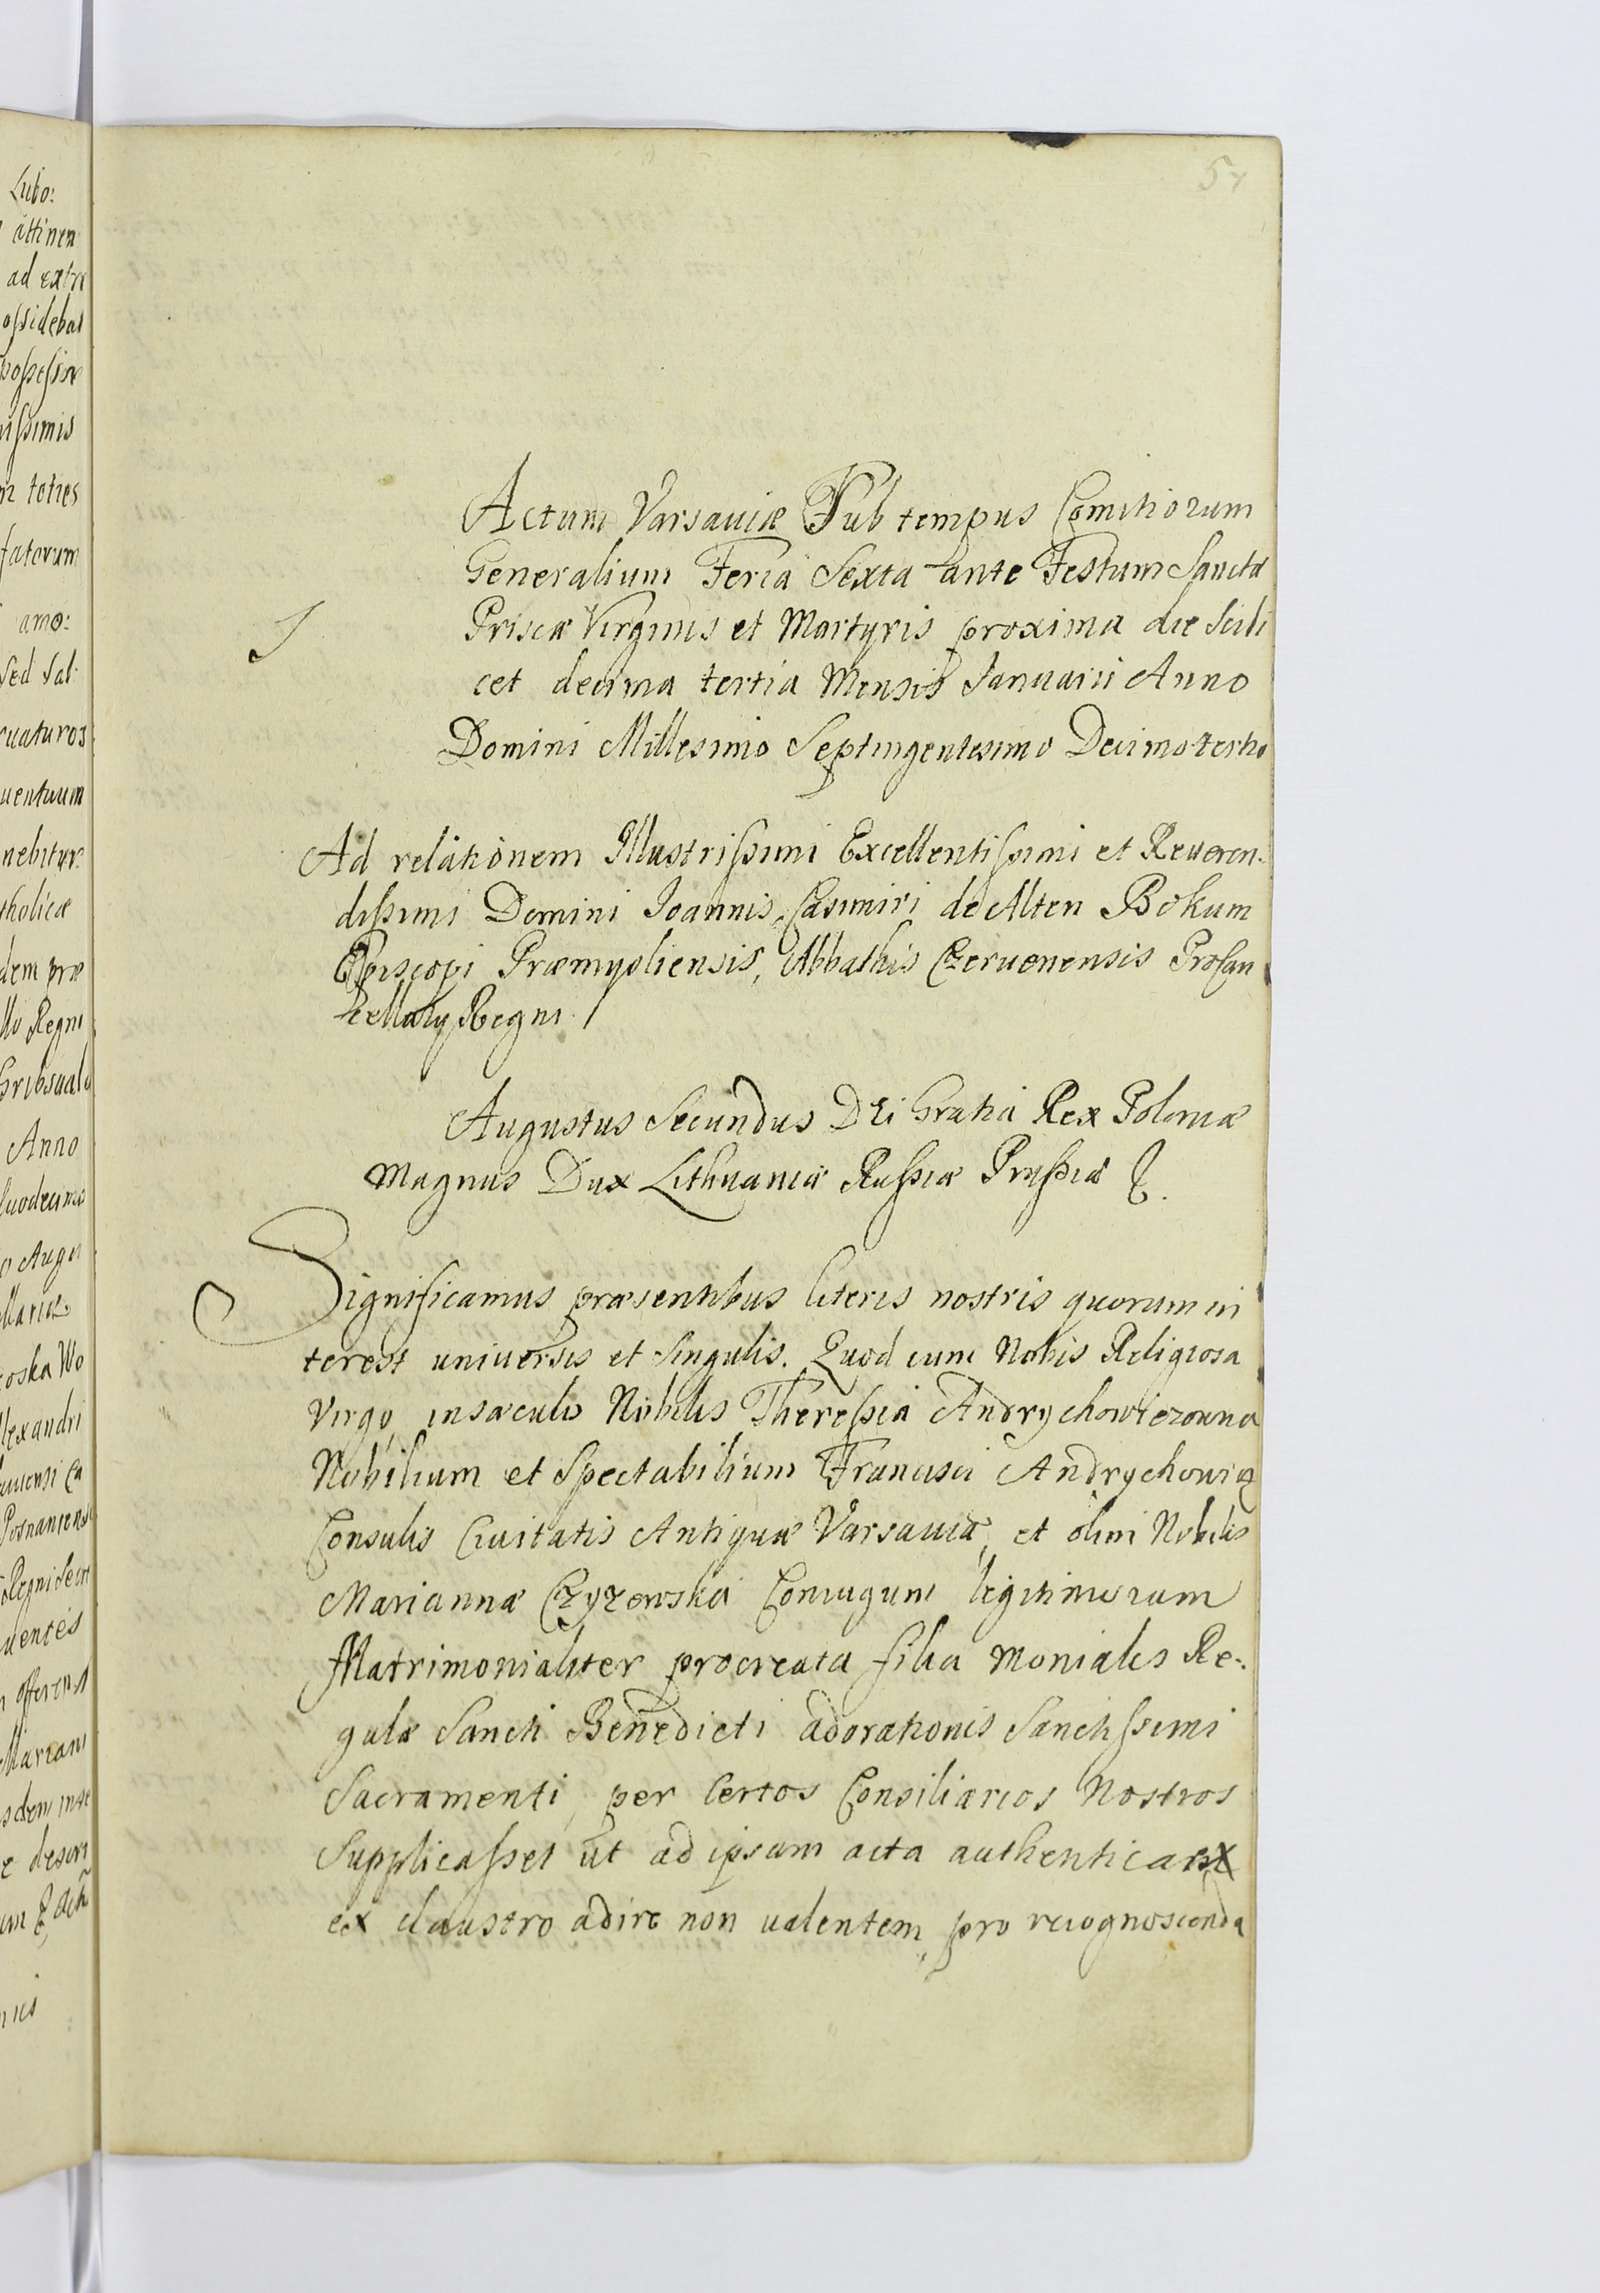 Lubo:
attinen
ad extre
ossidebat
possessio
issimis
m toties
fatorum
amo:
Sed sal
ruaturos
uentuum
nebitur
tholicæ
dem præ
llo Regni
Anno
duodecimo
o Augu
Mariæ
coska Wo
lexandri
Posnaniens
uentes
offerend
Mariani
e descri
57
Actum Varsauiæ Sub tempus Comitiorum
Generalium Feria Sexta ante Festum Sanctæ
Priscæ Virginis et Martyris proxima die Scili
cet decima tertia Mensis Januarii Anno
Domini Millesimo Septingentesimo Decimotertio
Ad relationem Illustrissimi Excellentissimi et Reueren-
dissimi Domini Joannis Casimiri de Alten Bokum
Episcopi Præmysliensis, Abbathis Czeruenensis Procan
cellarij Regni
Augustus Secundus DEi Gratia Rex Poloniæ
Magnus Dux Lithuaniæ Russiæ Prussiæ &.
Significamus præsentibus literis nostris quorum in
terest uniuersis et Singulis. Quod cum Nobis Religiosa
Virgo, insæculo Nobilis Theressia Andrychowiczouna
Nobilium et Spectabilium Francisci Andrychowicz
Consulis Ciuitatis Antiquæ Varsauiæ, et olim Nobilis
Mariannæ Czyzewska Coniugum legitimorum
Matrimonialiter procreata filia Monialis Re-
gulæ Sancti Benedicti adorationis Sanctissimi
Sacramenti, per Certos Consiliarios Nostros
Supplicasset ut ad ipsam acta authentica
ex claustro adire non ualentem, pro recognoscenda